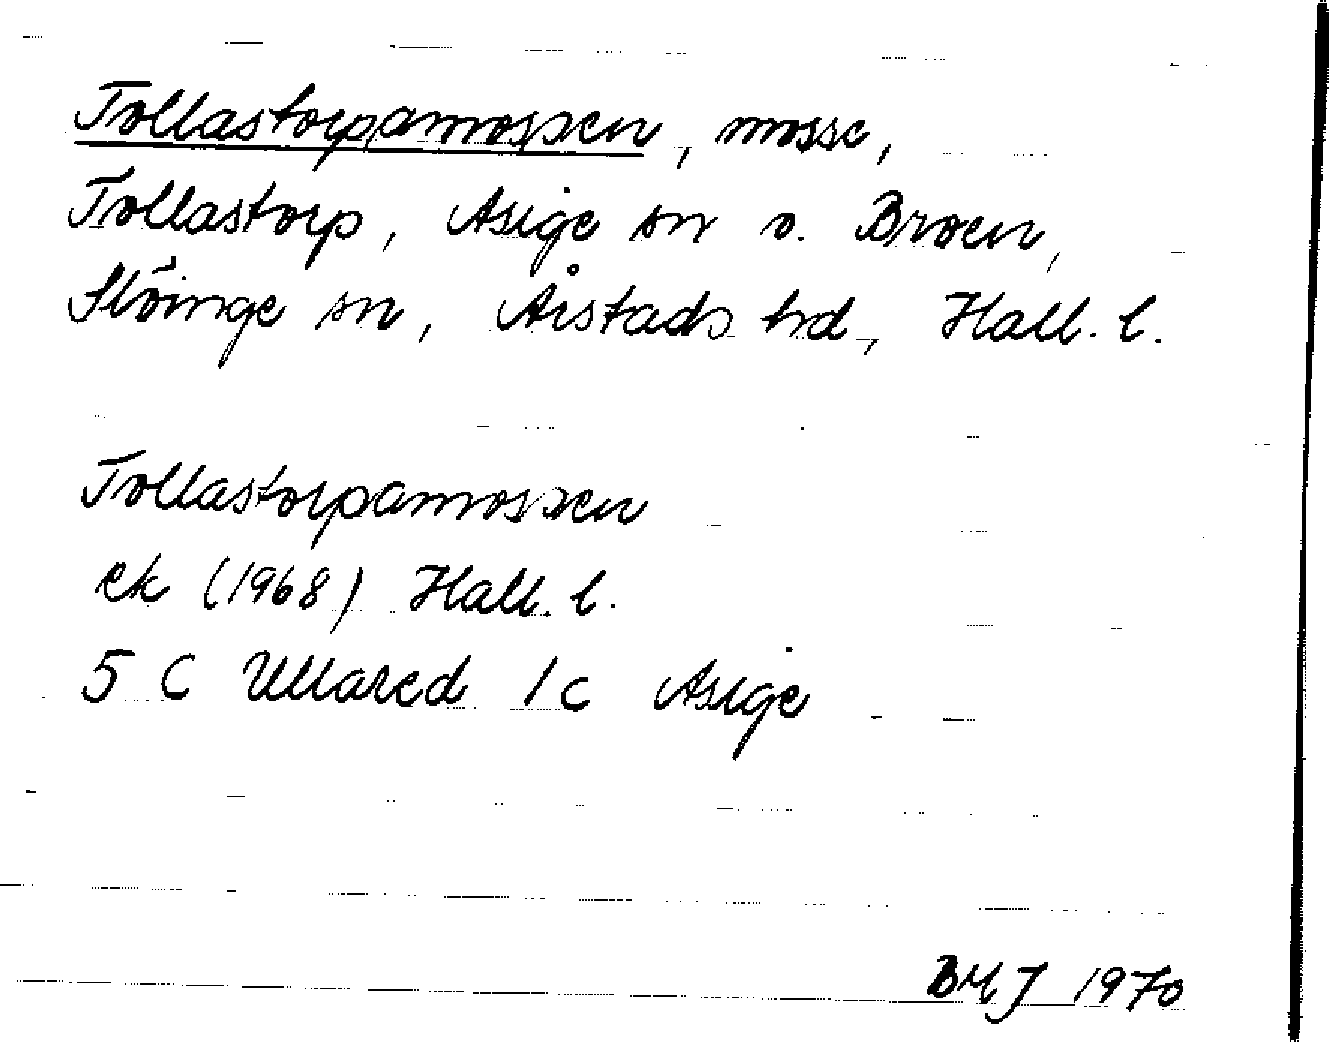 Tollastorpamossen, mosse,
Tollastorp, Asige sn o. Broen,
Slöinge sn, Årstads hd, Hall. l.
Tollastorpamossen
ek (1968) Hall. l.
5 C Ullared 1 c Asige
BMJ 1970